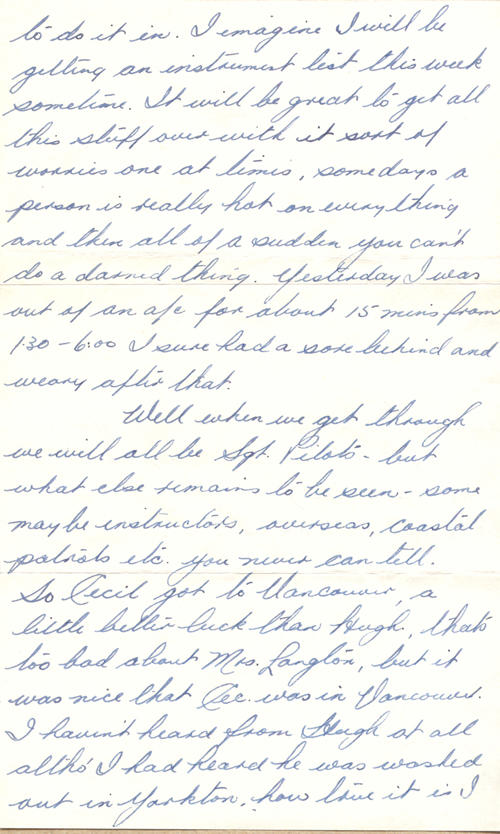 to do it in. I imagine I will be
getting an instrument test this week
sometime. It will be great to get all
this stuff over with it sort of
worries one at times, somedays a
person is really hot on everything
and then all of a sudden you can't
do a darned thing. Yesterday I was
out of an a/c for about 15 mins from
1:30 - 6:00 I sure had a sore behind and
weary after that.
Well when we get through
we will all be Sgt. Pilots - but
what else remains to be seen - some
maybe instructors, overseas, coastal
patrols etc. you never can tell.
So Cecil got to Vancouver, a
little better luck than Hugh, thats
too bad about Mrs. Langton, but it
was nice that Cec. was in Vancouver.
I haven't heard from Hugh at all
altho' I had heard he was washed
out in Yorkton, how true it is I